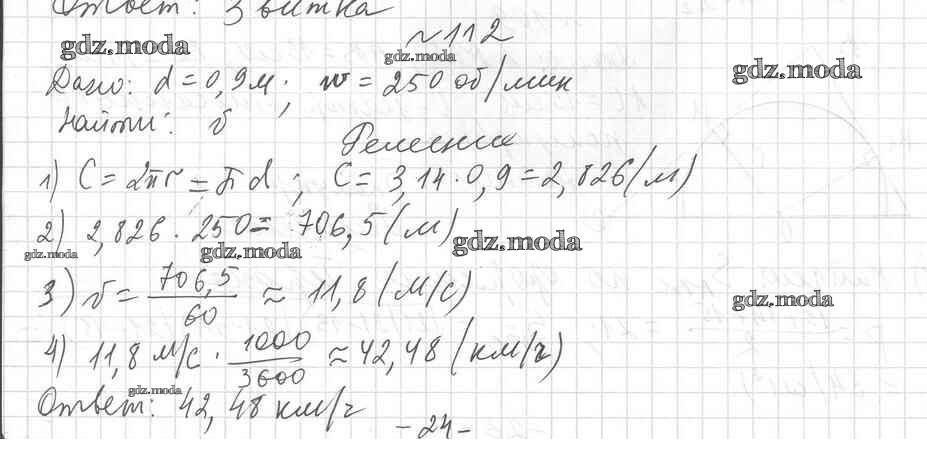 Ответ: 3 витка
№112
gdz.moda
gdz.moda
gdz.moda
Дано: d = 0,9м; w = 250 об/мин
Найти: v
Решение
1) C = 2πr = πd ; C = 3,14 · 0,9 = 2,826 (м)
2) 2,826 · 250 = 706,5 (м)
gdz.moda
gdz.moda
gdz.moda
3) v = 706,5/60 ≈ 11,8 (м/с)
gdz.moda
4) 11,8 м/с · 1000/3600 ≈ 42,48 (км/ч)
gdz.moda
Ответ: 42,48 км/ч
-24-